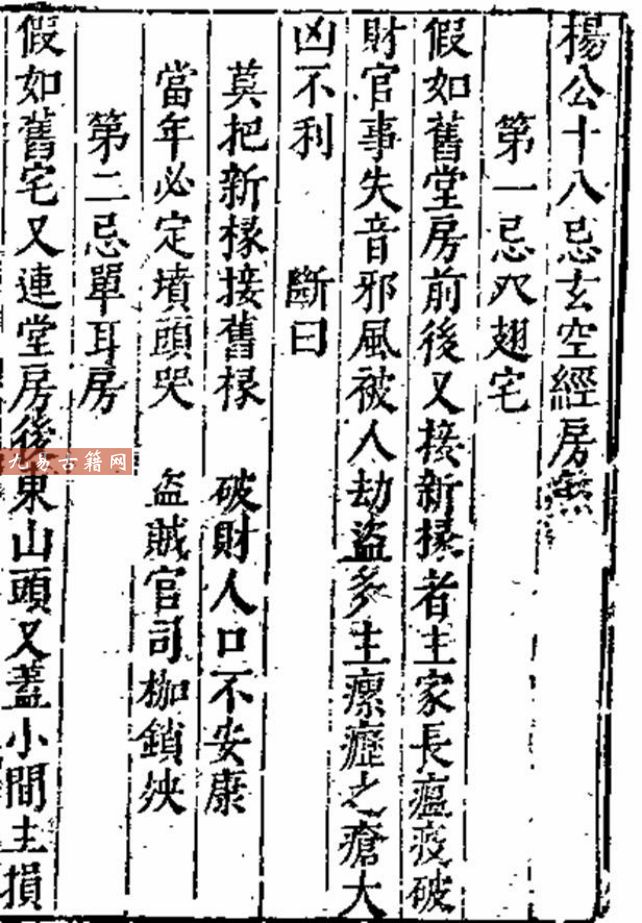 楊公十八忌玄空經房
第一忌𠆢翅宅
假如舊堂房前後又接新椽者主家長瘟疫破
財官事失音邪風被人劫盜多主瘰癧之瘡大
凶不利 斷曰
莫把新椽接舊椽 破財人口不安康
當年必定墳頭哭 盗賊官司枷鎖殃
第二忌單耳房
假如舊宅又連堂房後東山頭又蓋小間主損
九易古籍网